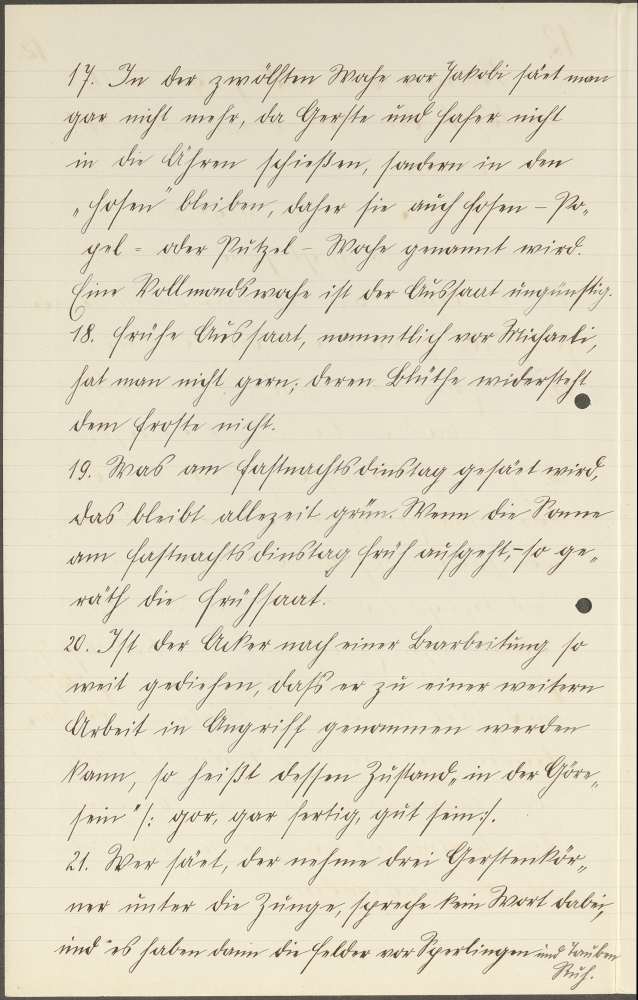 17. In der zwölften Woche vor Jakobi säet man
gar nicht mehr, da Gerste und Hafer nicht
in die Ähren schießen, sondern in den
„Hosen“ bleiben, daher sie auch Hosen – Po„
gel - oder Putzel – Woche genannt wird.
Eine Vollmondswoche ist der Aussaat ungünstig.
18. Frühe Aussaat, namentlich vor Michaeli,
hat man nicht gern; deren Blüthe widersteht
dem Froste nicht.
19. Was am Fastnachtsdinstag gesäet wird,
das bleibt allezeit grün. Wenn die Sonne
am Fastnachtsdinstag früh aufgeht, – so ge„
räth die Frühsaat.
20. Ist der Acker nach einer Bearbeitung so
weit gediehen, daß er zu einer weitern
Arbeit in Angriff genommen werden
kann, so heißt dessen Zustand „in der Göre„
sein“ /: gor, gar fertig, gut sein :/.
21. Wer säet, der nehme drei Gerstenkör„
ner unter die Zunge, spreche kein Wort dabei,
und es haben dann die Felder vor Sperlingen und Tauben
Ruh.